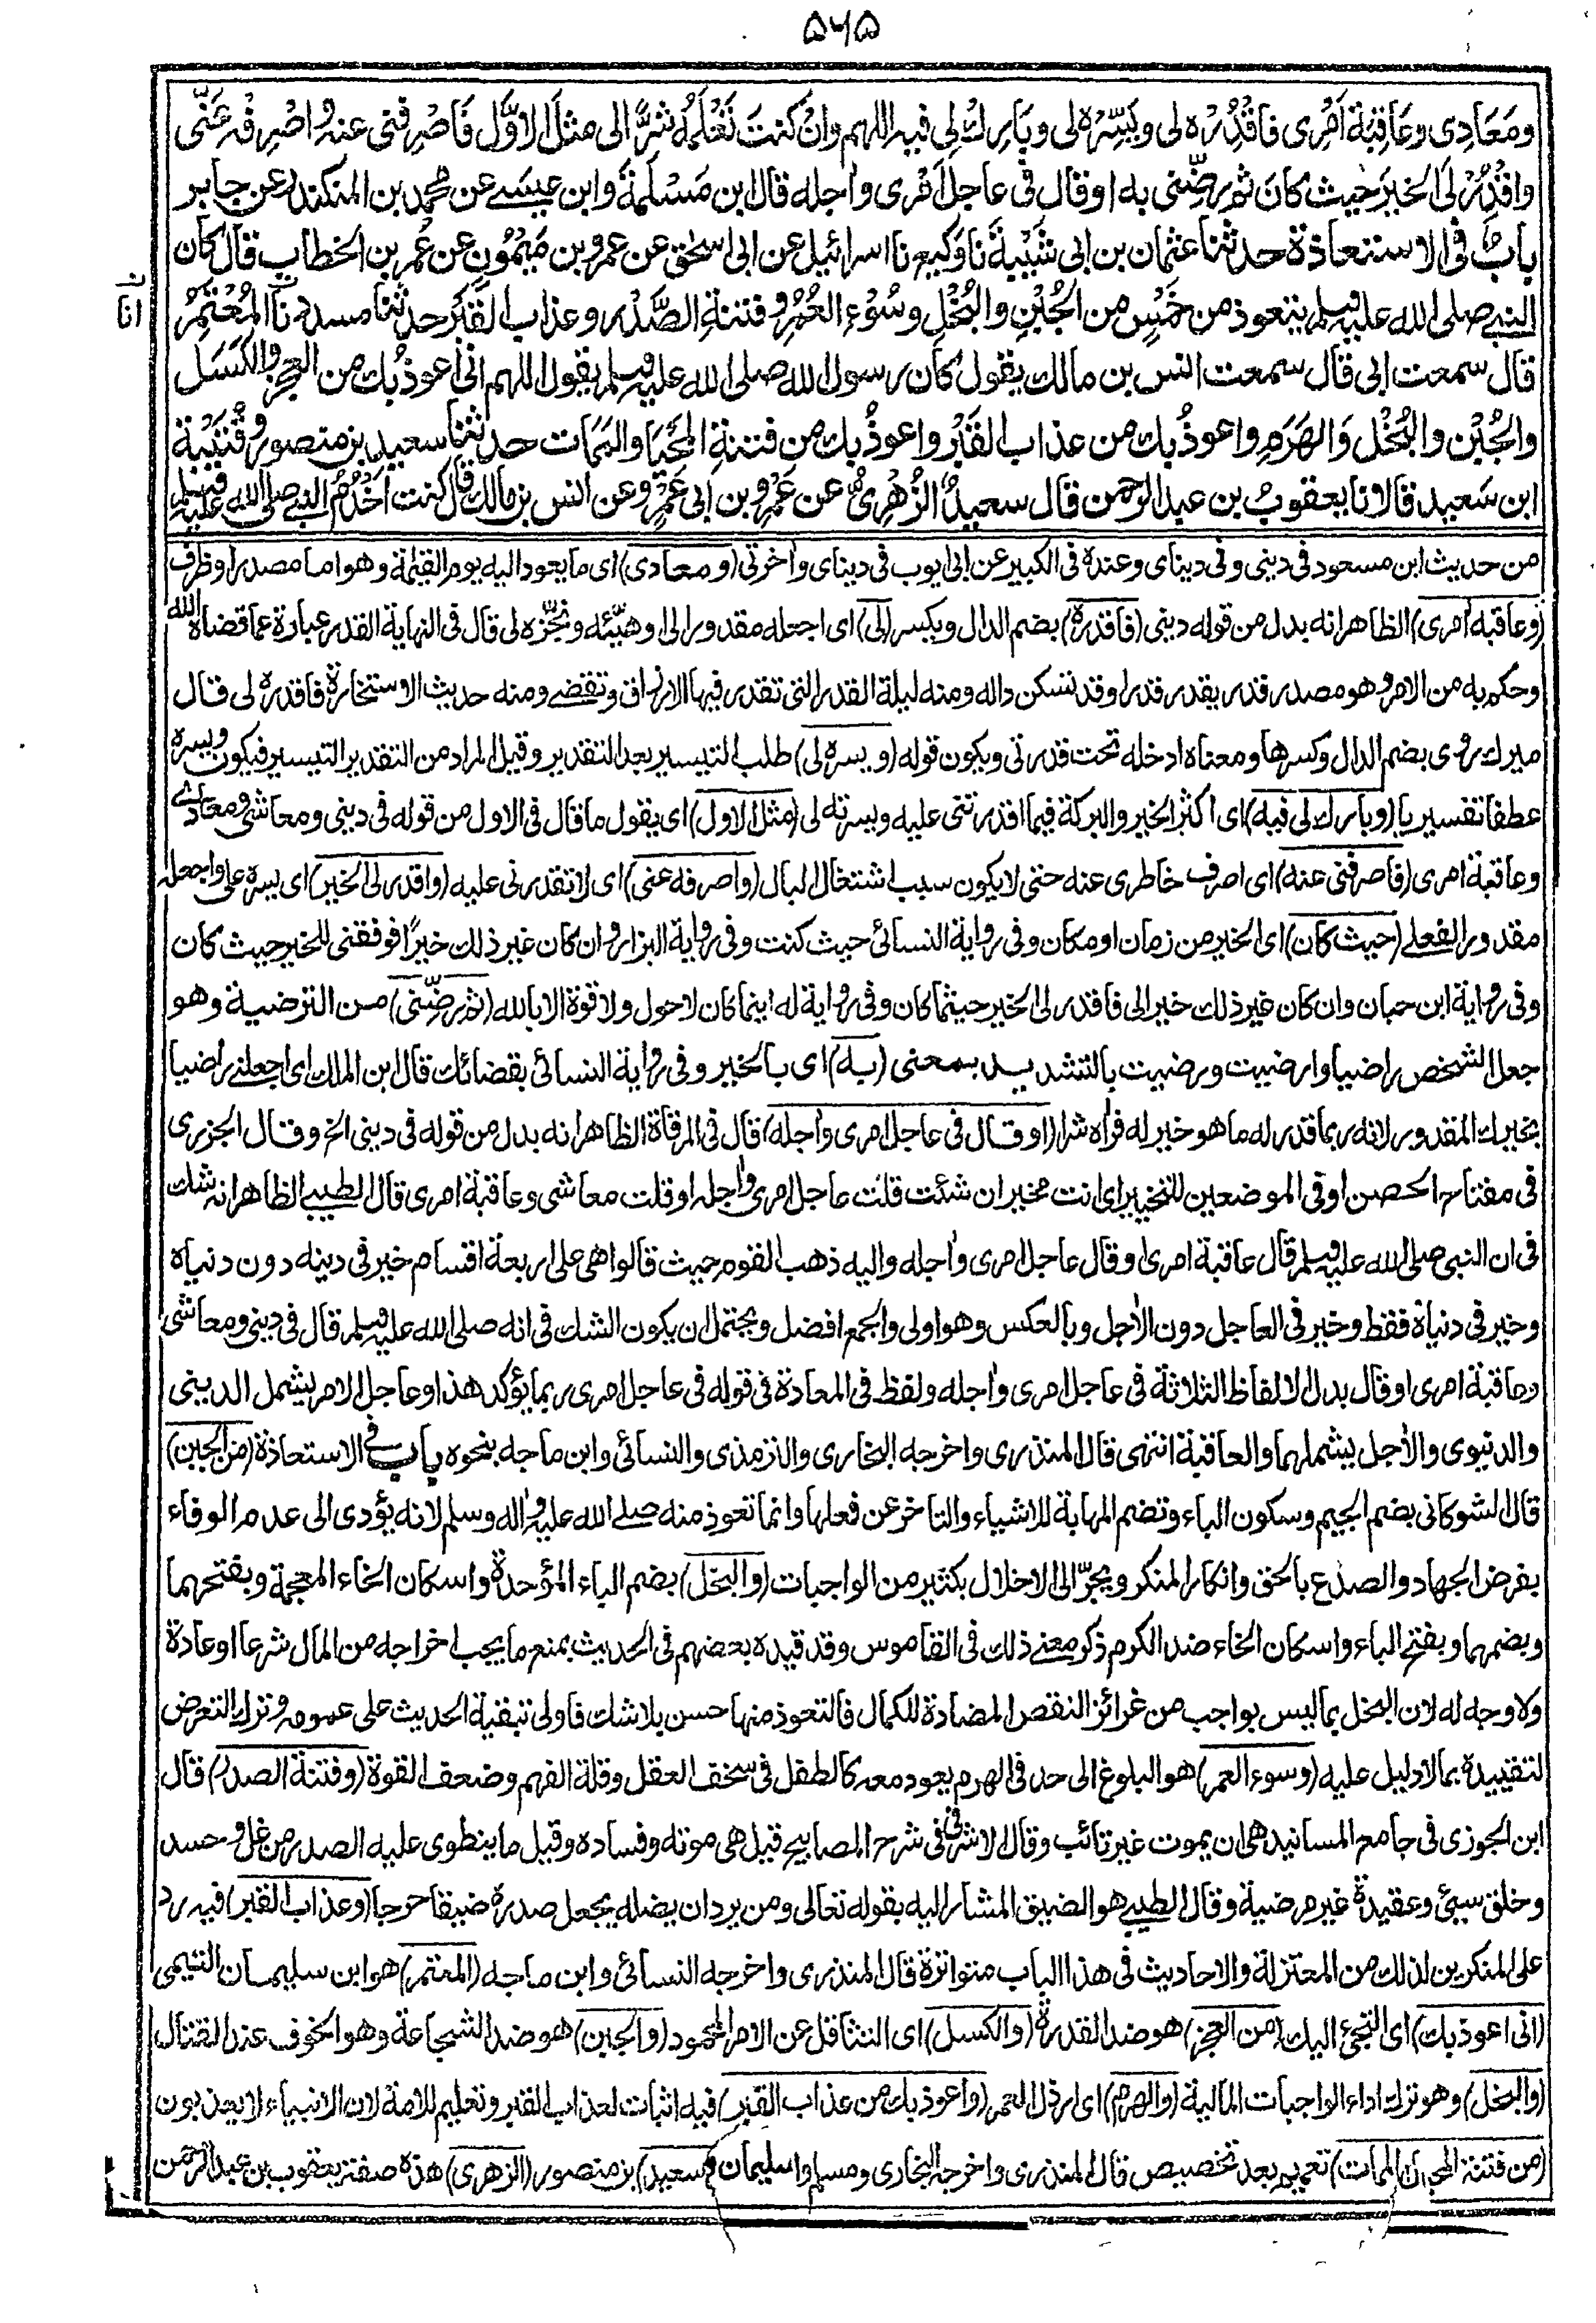 ٥٦٥
ومَعَادِى وعَاقِبَةِ اَمْرِى فاقْدُرْه لى ويَسِّرْه لى وبَارِكْ لى فيه اللهم وانْ كنتَ تَعْلَمُه شرًّا الى مثلَ الاوَّل فَاصْرِفْنى عنه واصْرِفه عَنِّى
واقْدُرْ لىَ الخيرَ حيث كانَ ثم رضِّنى به او قال فى عاجل اَمْرى واٰجله قال ابن مَسْلَمةَ وابن عيسٰے عن محمد بن المنكدر عن جابر
بابٌ فى الاستعاذة حدثنا عثمان بن ابى شَيْبةَ نا وَكيع نا اسرائيل عن ابى اسحٰق عن عمرو بن مَيْمُونٍ عن عُمر بن الخطاب قال كان
النبے صلى الله عليه وسلم يتعوذ من خمْسٍ من الجُبْنِ والبُخْلِ وسُوْءِ العُمُرِ وفتنةِ الصَّدْر وعذاب القَبْر حدثنا مسدد نا المُعْتَمِرُ
انا
قال سمعت ابى قال سمعت انس بن مالك يقول كان رسول الله صلى الله عليه وسلم يقول اللهم انى اعوذُ بك من العجز والكَسَل
والجُبْن والبُخْل وَالهَرَمِ واعوذُ بك من عذاب القَبْر واعوذُ بك من فتنةِ المَحْيَا والمَمَات حدثنا سعيد بن منصور وقُتَيْبة
ابن سَعيد قالا نا يعقوبُ بن عبد الرحمن قال سعيدٌ الزُهْرِىُّ عن عَمْرو بن ابى عَمْرٍو عن انس بن مالك قال كنت اَخْدُمُ النبے صلى الله عليه وسلم
من حديث ابن مسعود فى دينى وفى دنياى وعنده فى الكبير عن ابى ايوب فى دنياى واٰخرتى (ومعادى) اى ما يعود اليه يوم القيٰمة وهو اما مصدر او ظرف
(وعاقبة امرى) الظاهر انه بدل من قوله دينى (فاقدره) بضم الدال وبكسر (لى) اى اجعله مقدورا لى او هيّئه ونجّزه لى قال فى النهاية القدر عبارة عما قضاه الله
وحكم به من الامر وهو مصدر قدر يقدر قدرا وقد تسكن داله ومنه ليلة القدر التى تقدر فيها الارزاق وتقضے ومنه حديث الاستخارة فاقدره لى قال
ميرك روى بضم الدال وكسرها ومعناه ادخله تحت قدرتى ويكون قوله (ويسره لى) طلب التيسير بعد التقدير وقيل المراد من التقدير التيسير فيكون ويسره
عطفا تفسيريا (وبارك لى فيه) اى اكثر الخير والبركة فيما اقدرتنى عليه ويسرته لى (مثل الاول) اى يقول ما قال فى الاول من قوله فى دينى ومعاشى ومعادے
وعاقبة امرى (فاصرفنى عنه) اى اصرف خاطرى عنه حتى لا يكون سبب اشتغال البال (واصرفه عنى) اى لا تقدرنى عليه (واقدر لى الخير) اى يسره على واجعله
مقدورا لفعلے (حيث كان) اى الخير من زمان او مكان وفى رواية النسائى حيث كنت وفى رواية البزار وان كان غير ذلك خيرًا فوفقنى للخير حيث كان
وفى رواية ابن حبان وان كان غير ذلك خيرا لى فاقدر لى الخير حيثما كان وفى رواية له اينما كان لاحول ولا قوة الا بالله (ثم رضّنى) من الترضية وهو
جعل الشخص راضيا وارضيت ورضيت بالتشديد بمعنى (به) اى بالخير وفى رواية النسائى بقضائك قال ابن الملك اى اجعلنى راضيا
بخيرك المقدور لانه ربما قدر له ما هو خير له فراٰه شرا (او قال فى عاجل امرى واٰجله) قال فى المرقاة الظاهر انه بدل من قوله فى دينى الخ وقال الجزرى
فى مفتاح الحصن او فى الموضعين للتخيير اى انت مخير ان شئت قلت عاجل امرى واٰجله او قلت معاشى وعاقبة امرى قال الطيبے الظاهر انه شك
فى ان النبى صلى الله عليه وسلم قال عاقبة امرى او قال عاجل امرى واٰجله واليه ذهب القوم حيث قالوا هى على اربعة اقسام خير فى دينه دون دنياه
وخير فى دنياه فقط وخير فى العاجل دون الاٰجل وبالعكس وهو اولى والجمع افضل ويحتمل ان يكون الشك فى انه صلى الله عليه وسلم قال فى دينى ومعاشى
وعاقبة امرى او قال بدل الالفاظ الثلاثة فى عاجل امرى واٰجله ولفظ فى المعادة فى قوله فى عاجل امرى ربما يؤكد هذا وعاجل الامر يشمل الدينى
والدنيوى والاٰجل يشملهما والعاقبة انتهى قال المنذرى واخرجه البخارى والترمذى والنسائى وابن ماجه بنحوه باب فى الاستعاذة (من الجبن)
قال الشوكانى بضم الجيم وسكون الباء وتضم المهابة للاشياء والتاخر عن فعلها وانما تعوذ منه صلے الله عليه واٰله وسلم لانه يؤدى الى عدم الوفاء
بفرض الجهاد والصدع بالحق وانكار المنكر ويجرّ الى الاخلال بكثير من الواجبات (والبخل) بضم الباء المؤحدة واسكان الخاء المعجمة وبفتحهما
وبضمهما وبفتح الباء واسكان الخاء ضد الكرم ذكر معنے ذلك فى القاموس وقد قيده بعضهم فى الحديث بمنع ما يجب اخراجه من المال شرعا او عادة
ولا وجه له لان البخل بما ليس بواجب من غرائز النقص المضادة للكمال فالتعوذ منها حسن بلا شك فاولى تبقية الحديث على عمومه وترك التعرض
لتقييده بما لا دليل عليه (وسوء العمر) هو البلوغ الى حد فى الهرم يعود معه كالطفل فى سخف العقل وقلة الفهم وضعف القوة (وفتنة الصدر) قال
ابن الجوزى فى جامع المسانيد هى ان يموت غير تائب وقال الاشرفى فى شرح المصابيح قيل هى موته وفساده وقيل ما ينطوى عليه الصدر من غل وحسد
وخلق سيئ وعقيدة غير مرضية وقال الطيبے هو الضيق المشار اليه بقوله تعالى ومن يرد ان يضله يجعل صدره ضيقا حرجا (وعذاب القبر) فيه رد
على المنكرين لذلك من المعتزلة والاحاديث فى هذا الباب متواترة قال المنذرى واخرجه النسائى وابن ماجه (المعتمر) هو ابن سليمان التيمى
(انى اعوذ بك) اى التجئ اليك (من العجز) هو ضد القدرة (والكسل) اى التثاقل عن الامر المحمود (والجبن) هو ضد الشجاعة وهو الخوف عند القتال
(والبخل) وهو ترك اداء الواجبات المالية (والهرم) اى ارذل العمر (واعوذ بك من عذاب القبر) فيه اثبات لعذاب القبر وتعليم للامة لان الانبياء لا يعذبون
(من فتنة المحيا والممات) تعميم بعد تخصيص قال المنذرى واخرجه البخارى ومسلم (سعيد) بن منصور (الزهرى) هذه صفة يعقوب بن عبد الرحمن